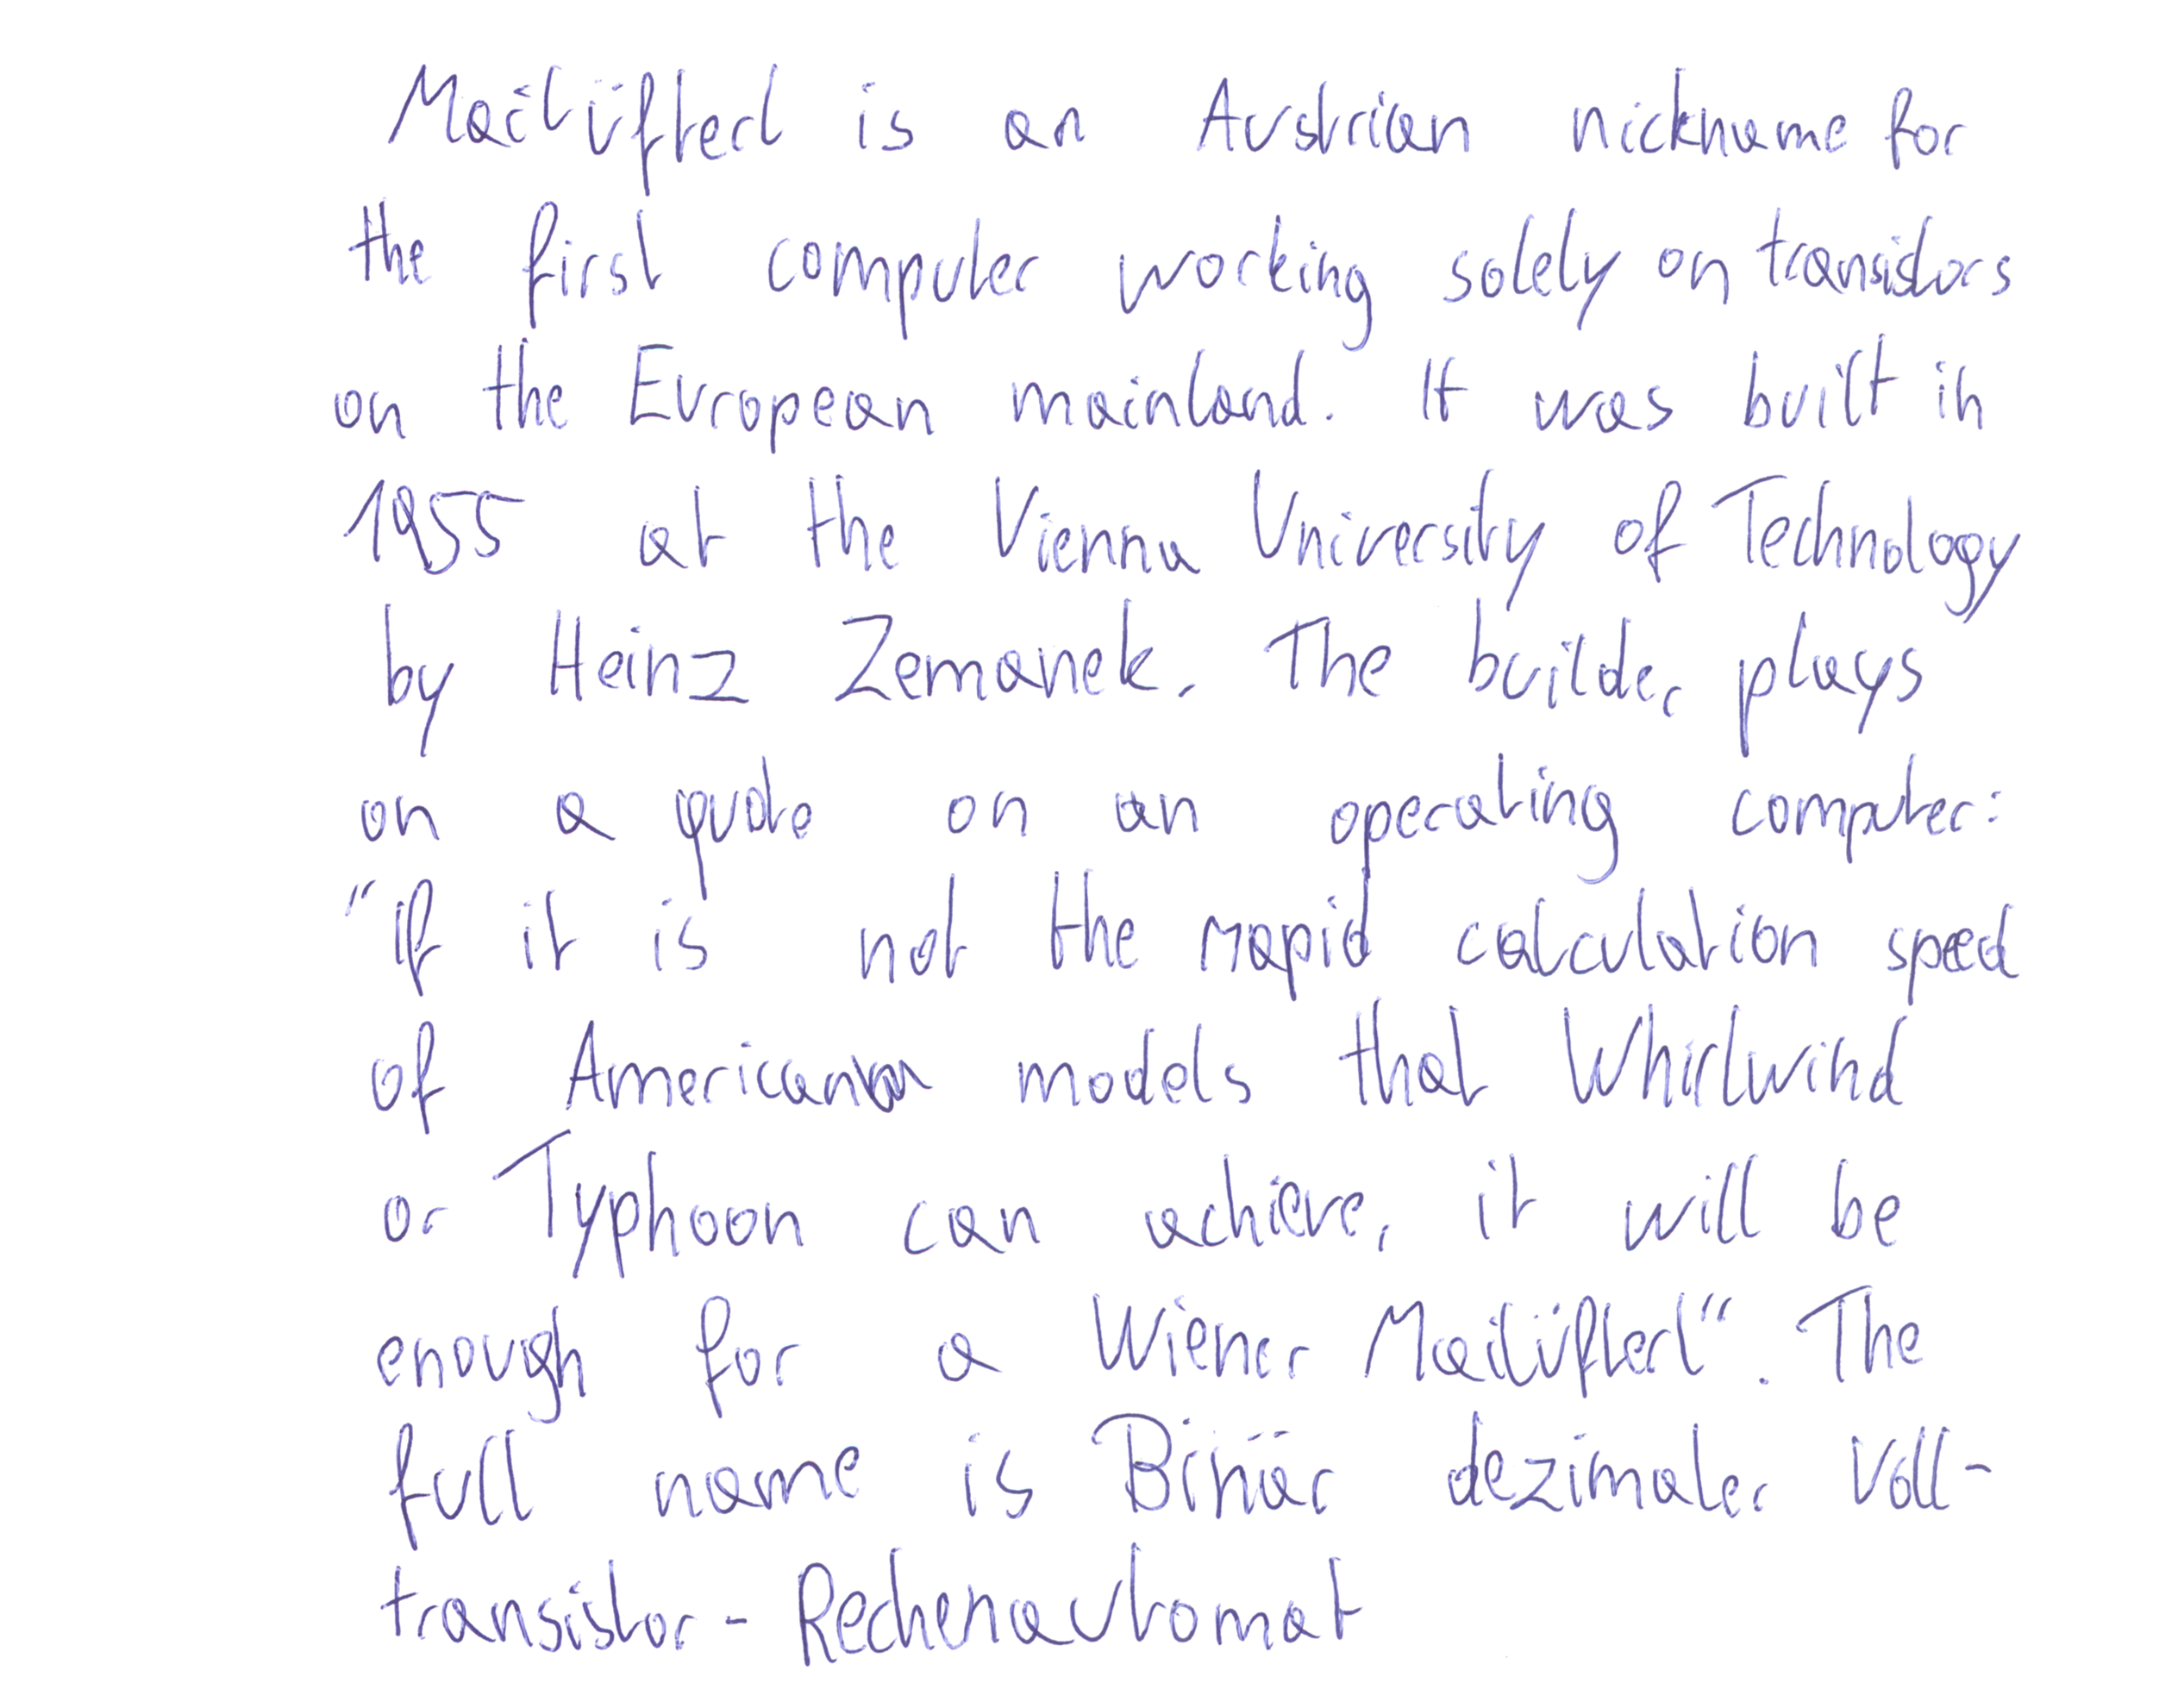 Mailüfterl is an Austrian nickname for
the first computer working solely on transistors
on the European mainland. It was built in
1955 at the Vienna University of Technology
by Heinz Zemanek. The builder plays
on a quote on an operating computer:
"If it is not the rapid calculation speed
of American models that Whirlwind
or Typhoon can achieve, it will be
enough for a Wiener Mailüfterl". The
full name is Binär dezimaler Voll-
transistor-Rechenautomat